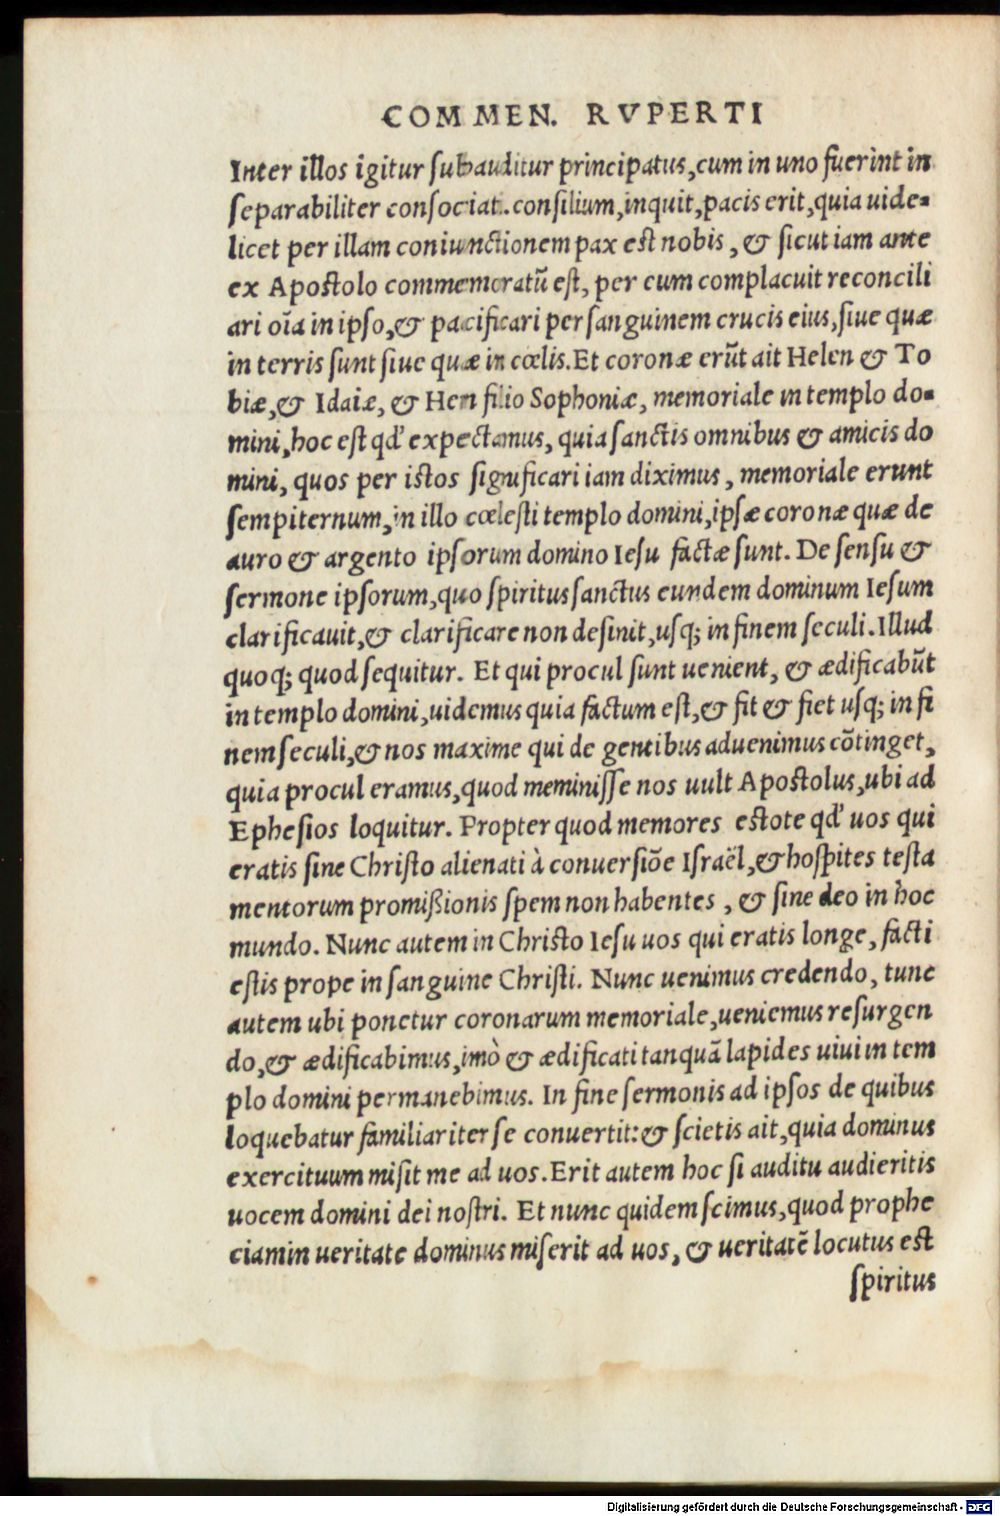 COMMEN. RVPERTI
Inter illos igitur subauditur principatus, cum in uno fuerint in
separabiliter consociat. consilium, inquit, pacis erit, quia uide-
licet per illam coniunctionem pax est nobis, & sicut iam ante
ex Apostolo commemoratū est, per eum complacuit reconcili
ari oīa in ipso, & pacificari per sanguinem crucis eius, siue quæ
in terris sunt siue quæ in cœlis. Et coronæ erūt ait Helen & To
biæ, & Idaiæ, & Hen filio Sophoniæ, memoriale in templo do-
mini, hoc est qd' expectamus, quia sanctis omnibus & amicis do
mini, quos per istos significari iam diximus, memoriale erunt
sempiternum, in illo cœlesti templo domini, ipsæ coronæ quæ de
auro & argento ipsorum domino Iesu factæ sunt. De sensu &
sermone ipsorum, quo spiritus sanctus eundem dominum Iesum
clarificauit, & clarificare non desinit, usq; in finem seculi. Illud
quoq; quod sequitur. Et qui procul sunt uenient, & ædificabūt
in templo domini, uidemus quia factum est, & fit & fiet usq; in fi
nem seculi, & nos maxime qui de gentibus aduenimus cōtinget,
quia procul eramus, quod meminisse nos uult Apostolus, ubi ad
Ephesios loquitur. Propter quod memores estote qd' uos qui
eratis sine Christo alienati à conuersiōe Israël, & hospites testa
mentorum promißionis spem non habentes, & sine deo in hoc
mundo. Nunc autem in Christo Iesu uos qui eratis longe, facti
estis prope in sanguine Christi. Nunc uenimus credendo, tunc
autem ubi ponetur coronarum memoriale, ueniemus resurgen
do, & ædificabimus, imò & ædificati tanquā lapides uiui in tem
plo domini permanebimus. In fine sermonis ad ipsos de quibus
loquebatur familiariter se conuertit: & scietis ait, quia dominus
exercituum misit me ad uos. Erit autem hoc si auditu audieritis
uocem domini dei nostri. Et nunc quidem scimus, quod prophe
ciam in ueritate dominus miserit ad uos, & ueritatē locutus est
spiritus
Digitalisierung gefördert durch die Deutsche Forschungsgemeinschaft - DFG